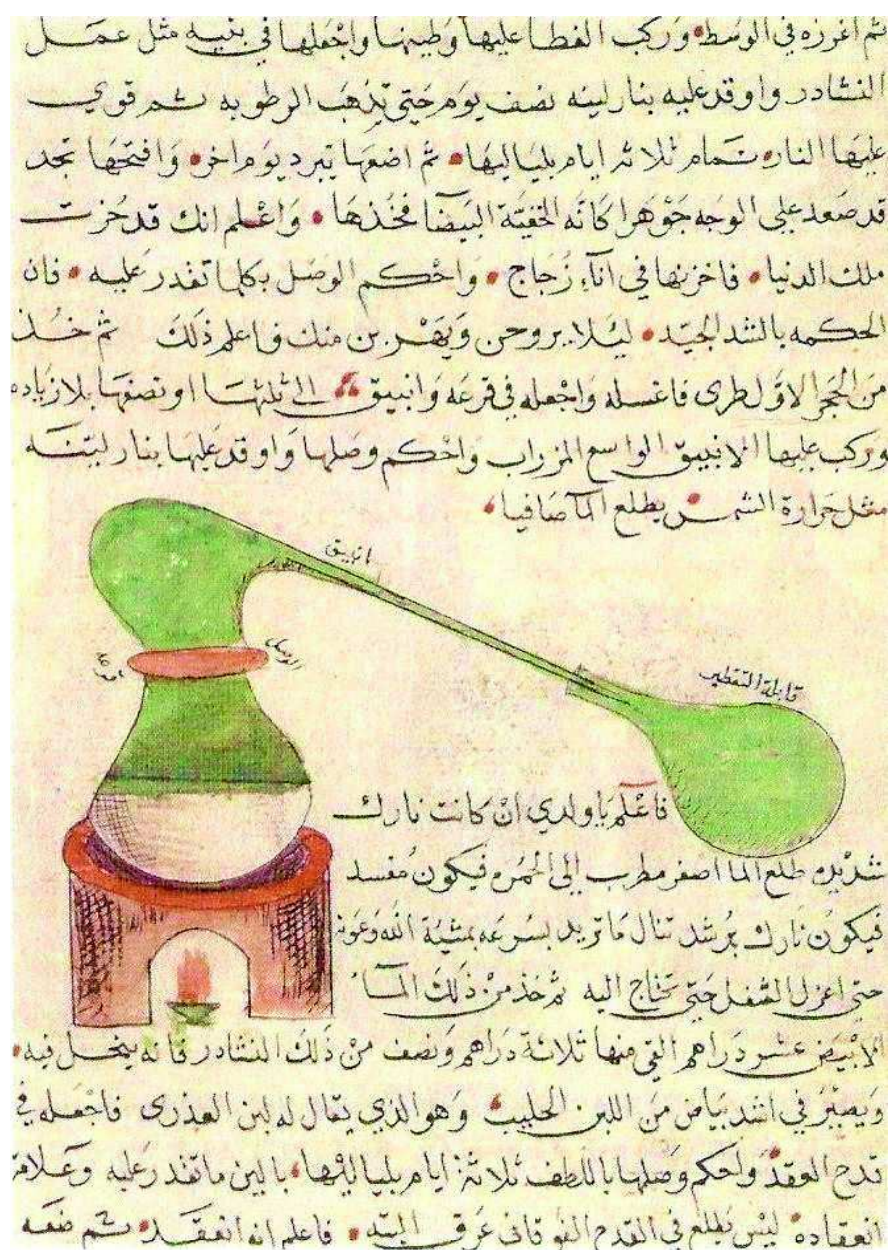 ثم اغرزه في الوسط وركب الغطا عليها وطينها واجعلها في بنيه مثل عمل
النشادر واوقد عليه بنار لينه نصف يوم حتى يذهب الرطوبه ثم قوي
عليها النار تمام ثلاثه ايام بلياليها ثم اضعها تبرد يوم اخر وافتحها تجد
قد صعد على الوجه جوهرا كانه البيضا فخذها واعلم انك قد حزت
ملك الدنيا فاخزنها في اناء زجاج واحكم الوصل بكلما تقدر عليه فان
الحكمه بالشد الجيد ليئلا يروحن ويهربن منك فاعلم ذلك ثم خذ
من الحجر الاول طرى فاغسله واجعله في قرعه وانبيق الى ثلثها او نصفها بلا زياده
وركب عليها الانبيق الواسع المزراب واحكم وصلها واوقد عليها بنار لينه
مثل حرارة الشمس يطلع الما صافيا
انبيق
الوصل
قابلة التقطير
فاعلم يا ولدي ان كانت نارك
شديده طلع الما اصفر مطرب الى الحمره فيكون مفسد
فيكون نارك برشد تنال ما تريد بسرعه بمشية الله وعونه
حتى اعزل الثفل حتى تحتاج اليه ثم خذ من ذلك الماء
الابيض عشر دراهم القي منها ثلاثة دراهم ونصف من ذلك النشادر فانه ينحل فيه
ويصير في اشد بياض من اللبن الحليب وهو الذي يقال له لبن العذرى فاجعله في
قدح العقد واحكم وصلها باللطف ثلاثة ايام بلياليها بالين ما تقدر عليه وعلامة
انعقاده ليس يطلع في القدح الفوقاني عرق البته فاعلم انه انعقد ثم ضعه